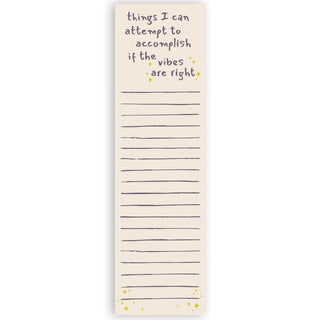 things I can
attempt to
accomplish
if the vibes
are right